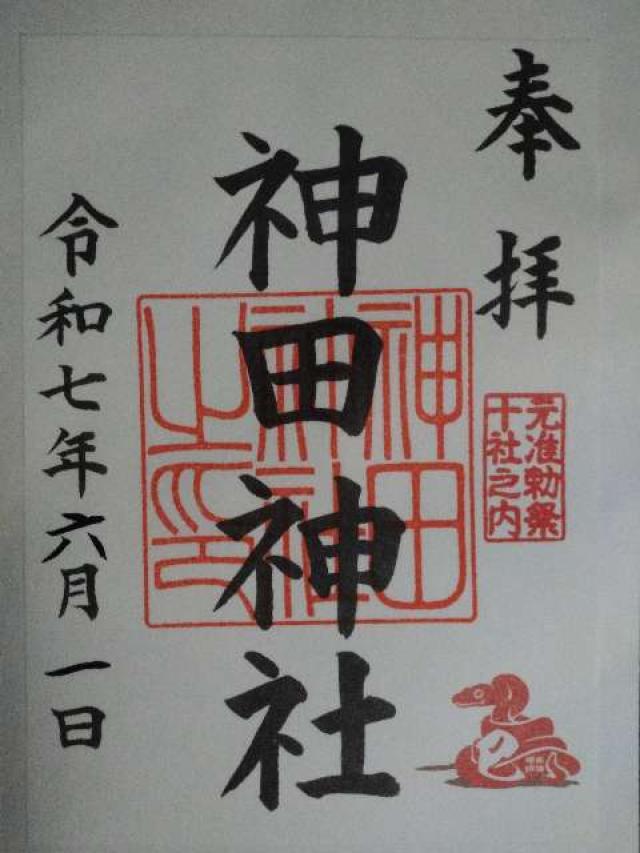 奉拝
元准勅祭
十社之内
神田神社
神田
神社
之印
巳
令和七年六月一日